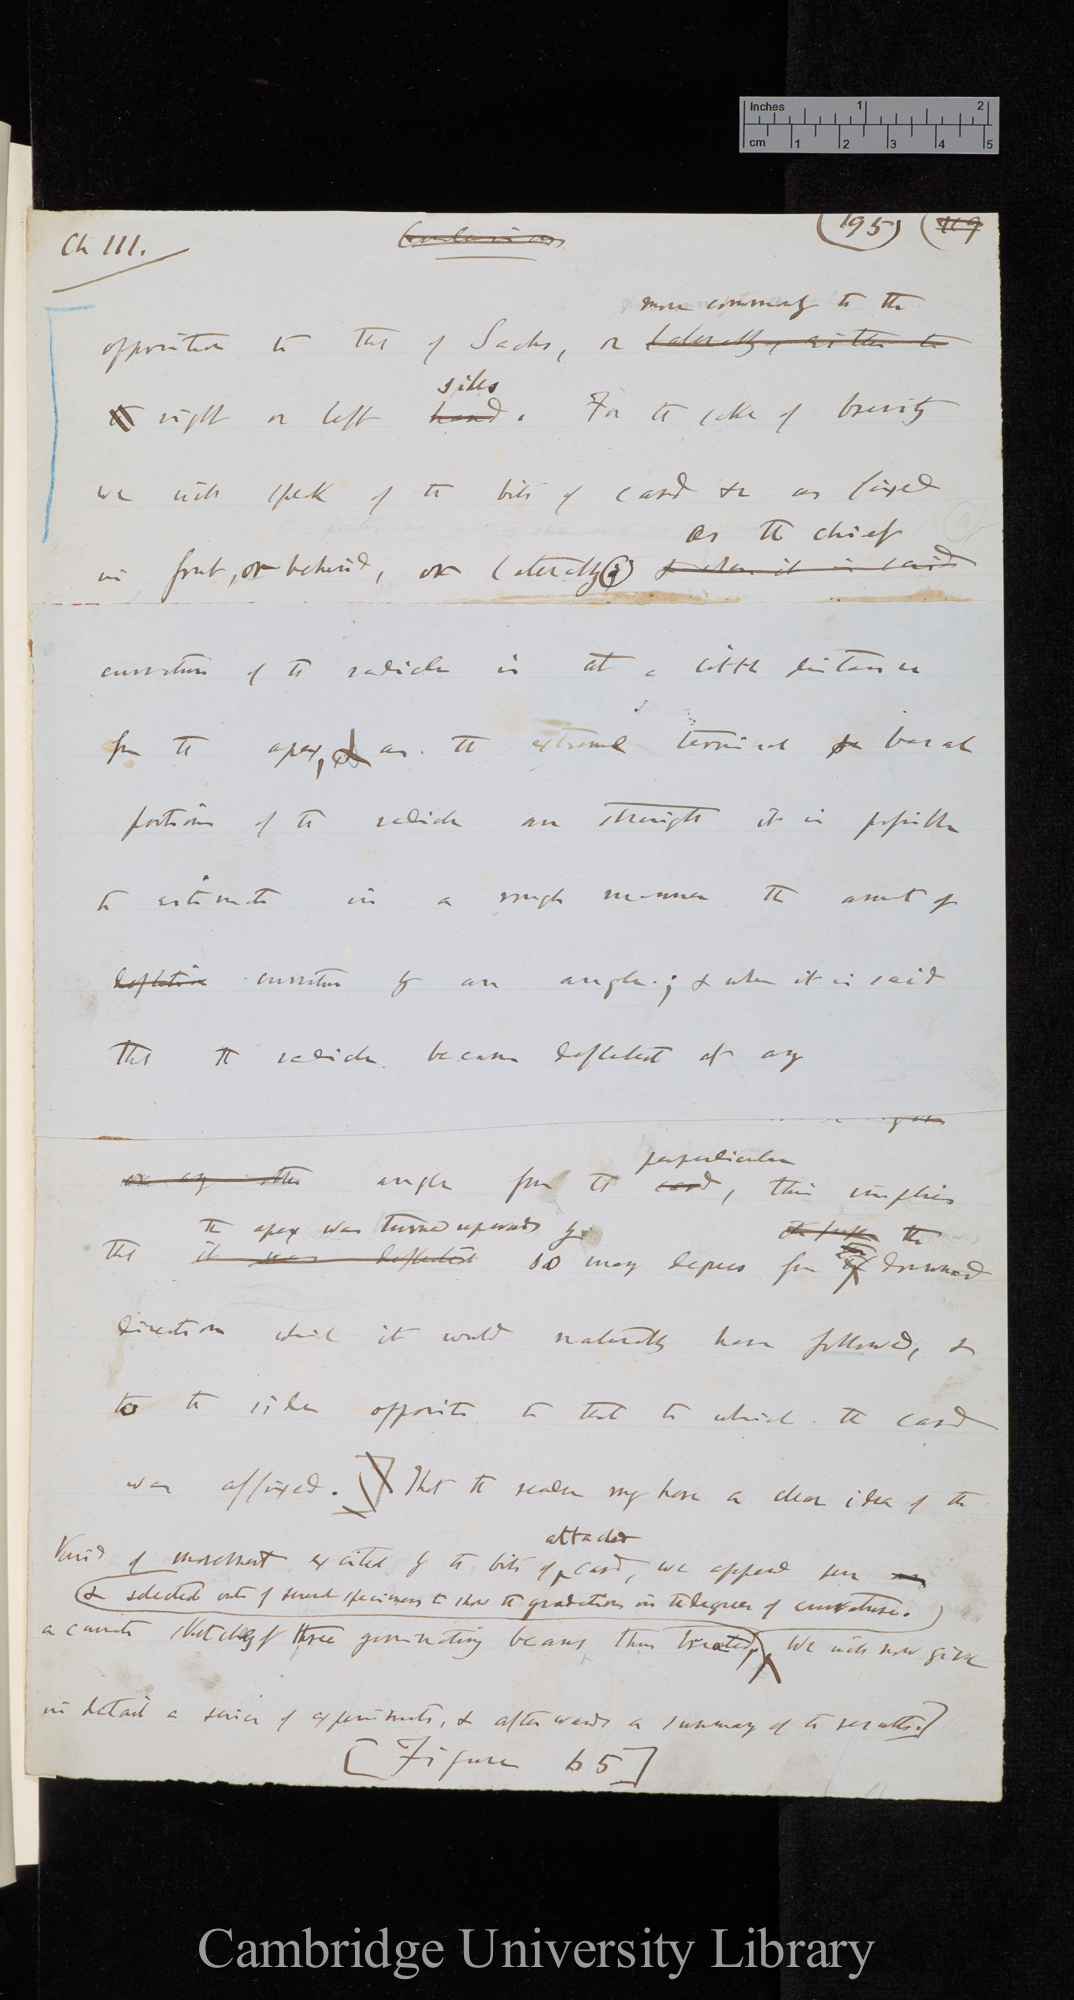 Inches 1 2
cm 1 2 3 4 5
Ch III.
(195) (119
more commonly to the
opposition to that of Sachs, or laterally, either to
the right or left hand sides. For the sake of brevity
we will speak of the bits of card &c as fixed
as the chief
in front, or behind, or laterally. & when it is said
curvature of the radicle is at a little distance
from the apex, & as the extreme terminal & basal
portions of the radicle are straight it is possible
to estimate in a rough manner the amount of
deflection curvature by an angle; & when it is said
that the radicle became deflected at any
or any other angle from the card, this implies
perpendicular
the apex was turned upwards by the
that it was deflected so many degrees from the downward
direction which it would naturally have followed, &
to the side opposite to that to which the card
was affixed. That the reader may have a clear idea of the
attached
kind of movement excited by the bits of card, we append here
& selected out of several specimens to show the gradations in the degrees of curvature.
accurate sketches of three germinating beans thus treated, We will now give
in detail a series of experiments, & afterwards a summary of the results.]
[Figure 65]
Cambridge University Library